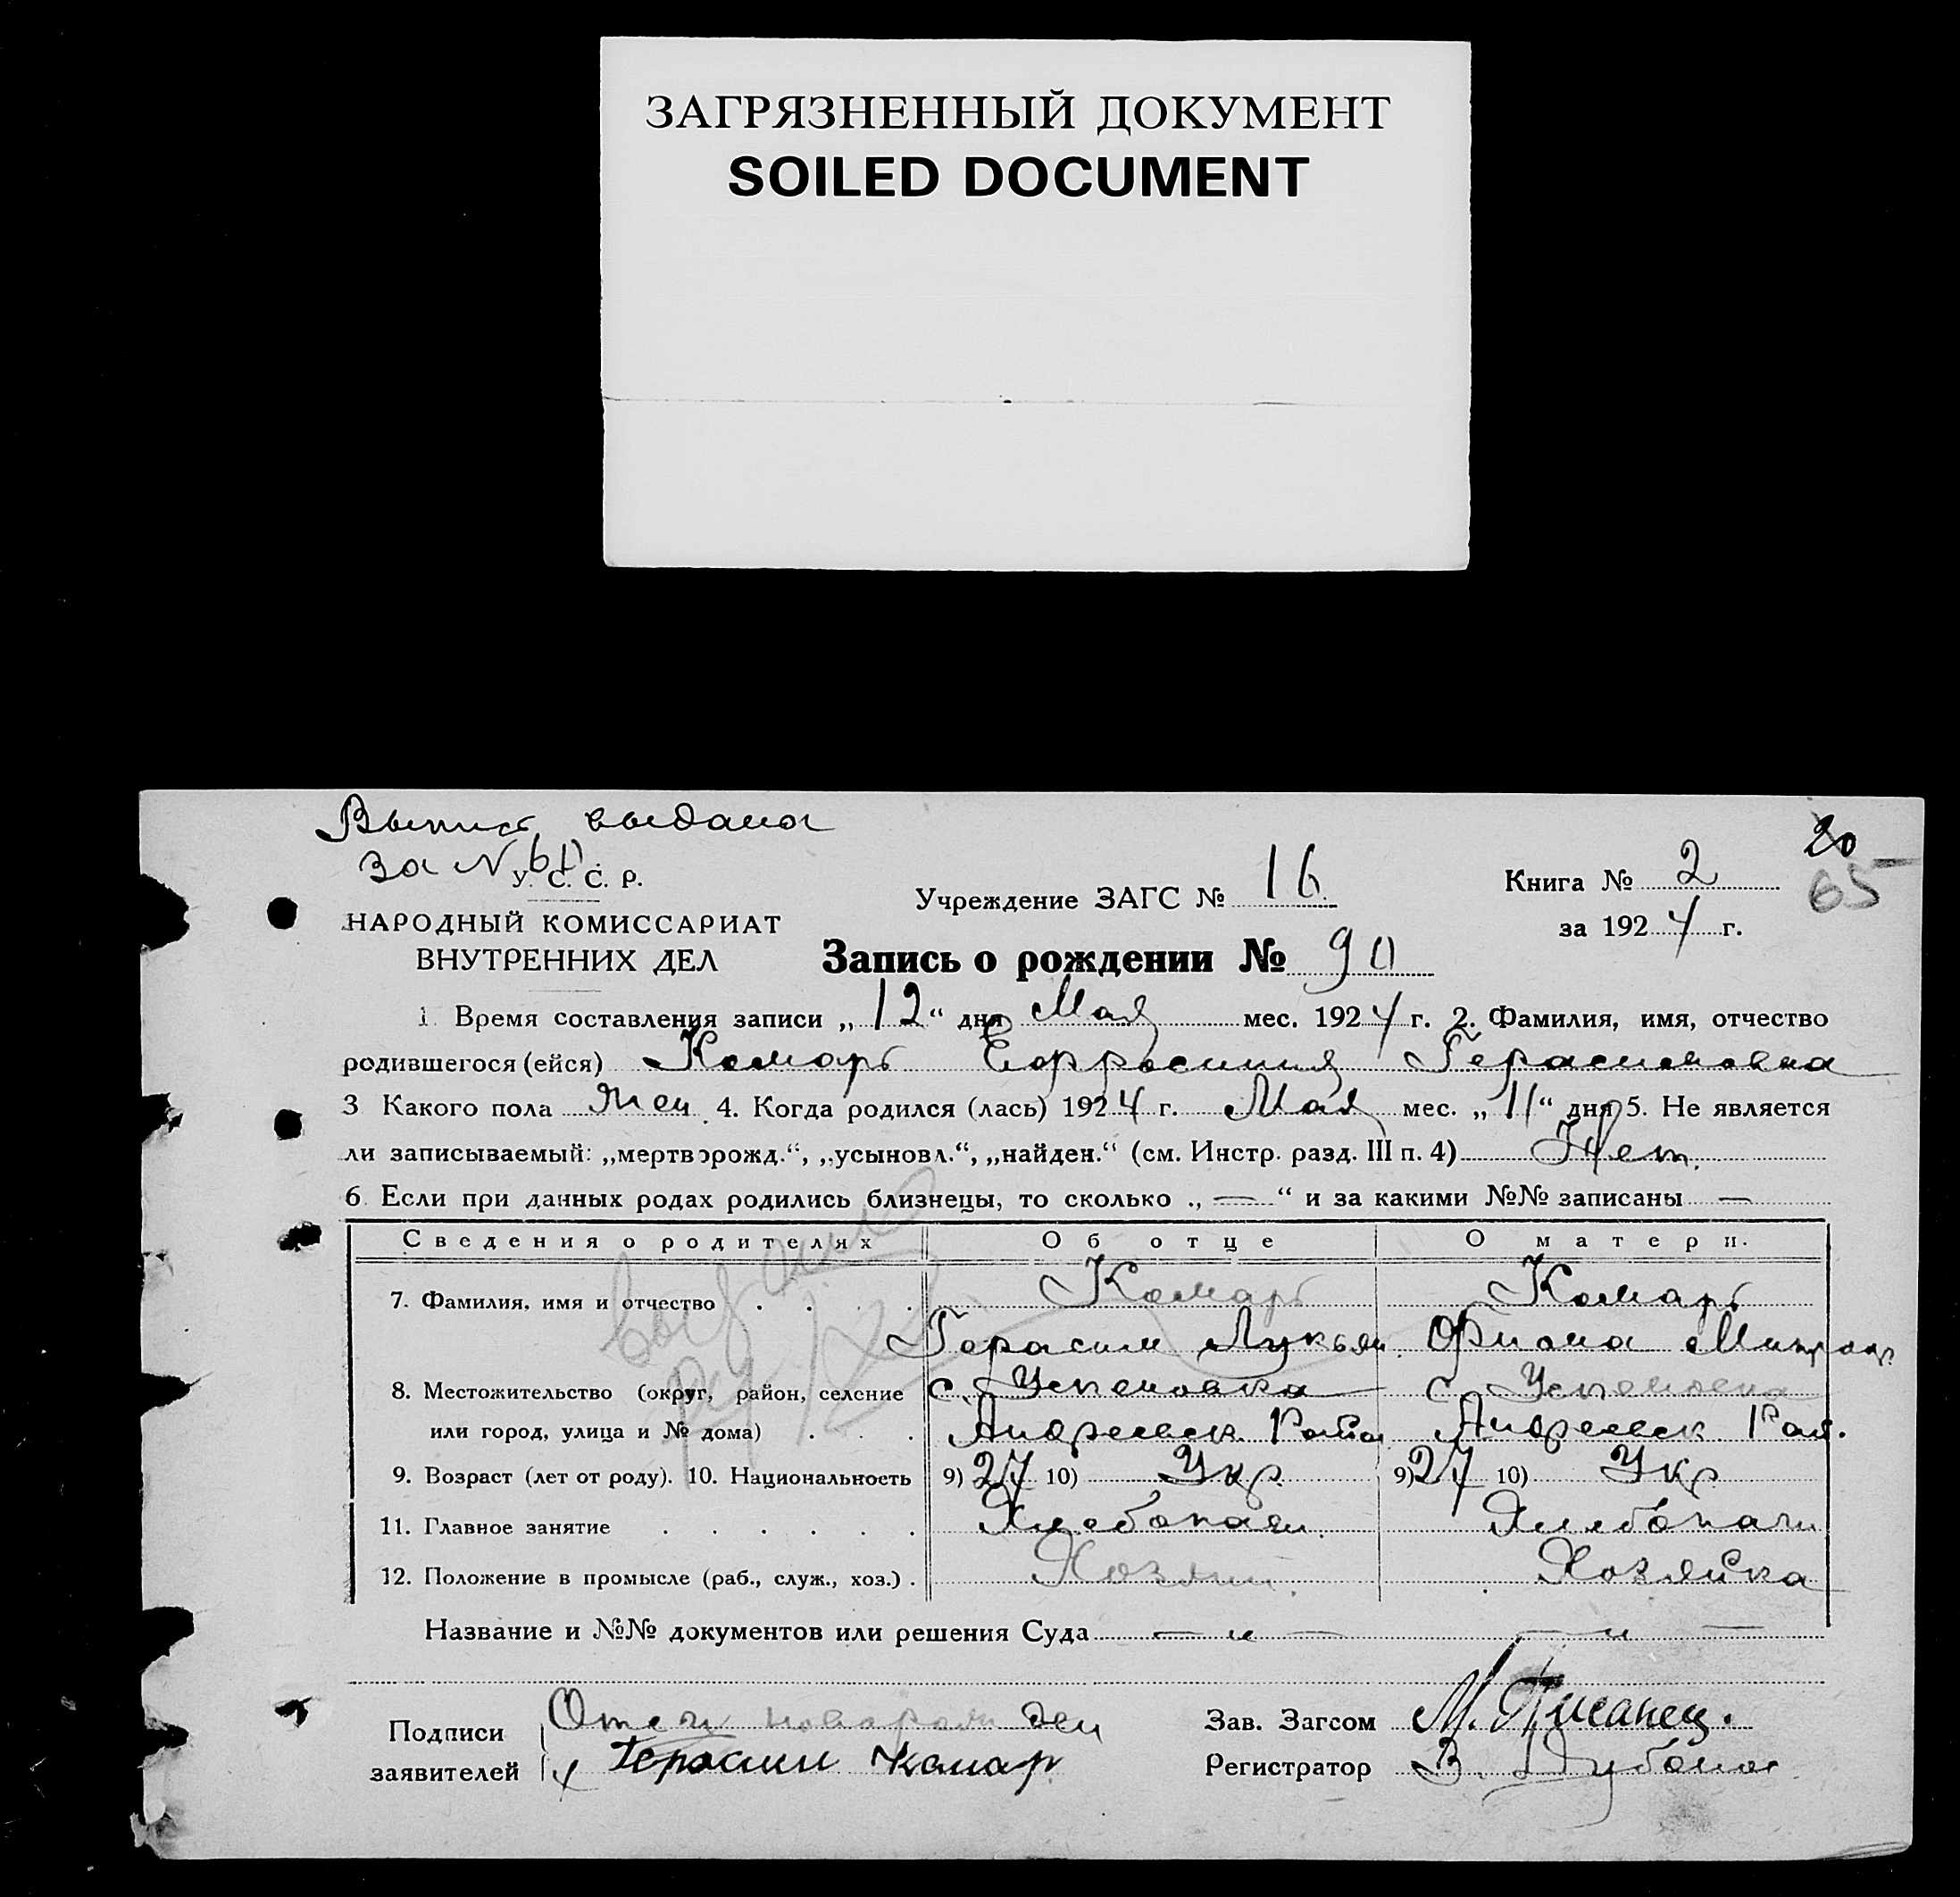 ЗАГРЯЗНЕННЫЙ ДОКУМЕНТ
SOILED DOCUMENT
Выпись выдана
за №
У. С. С. Р.
НАРОДНЫЙ КОМИССАРИАТ
ВНУТРЕННИХ ДЕЛ
Учреждение ЗАГС № 16
Книга № 2
20
65
за 1924 г.
Запись о рождении № 90
1. Время составления записи „12“ дня Мая мес. 1924 г. 2. Фамилия, имя, отчество
родившегося (ейся) Комарь Ефросиния Герасимовна
3 Какого пола жен 4. Когда родился (лась) 1924 г. Мая мес. „11“ дня 5. Не является
ли записываемый: „мертворожд.“, „усыновл.“, „найден.“ (см. Инстр. разд. III п. 4) Нет.
6. Если при данных родах родились близнецы, то сколько „—“ и за какими №№ записаны —
Сведения о родителях Об отце О матери.
7. Фамилия, имя и отчество Комарь Комарь
Герасим Лукьян.
8. Местожительство (округ, район, селение с. Успеновка с. Успеновка
или город, улица и № дома) Андреевск. Район Андреевск Рай.
9. Возраст (лет от роду). 10. Национальность 9) 27 10) Укр. 9) 27 10) Укр.
11. Главное занятие Хлебопаш. Хлебопаш
12. Положение в промысле (раб., служ., хоз.) Хозяин. Хозяйка
Название и №№ документов или решения Суда — „ — — „ —
Подписи Отец Зав. Загсом М. Писанец.
заявителей х Герасим Камар Регистратор В.
выдано